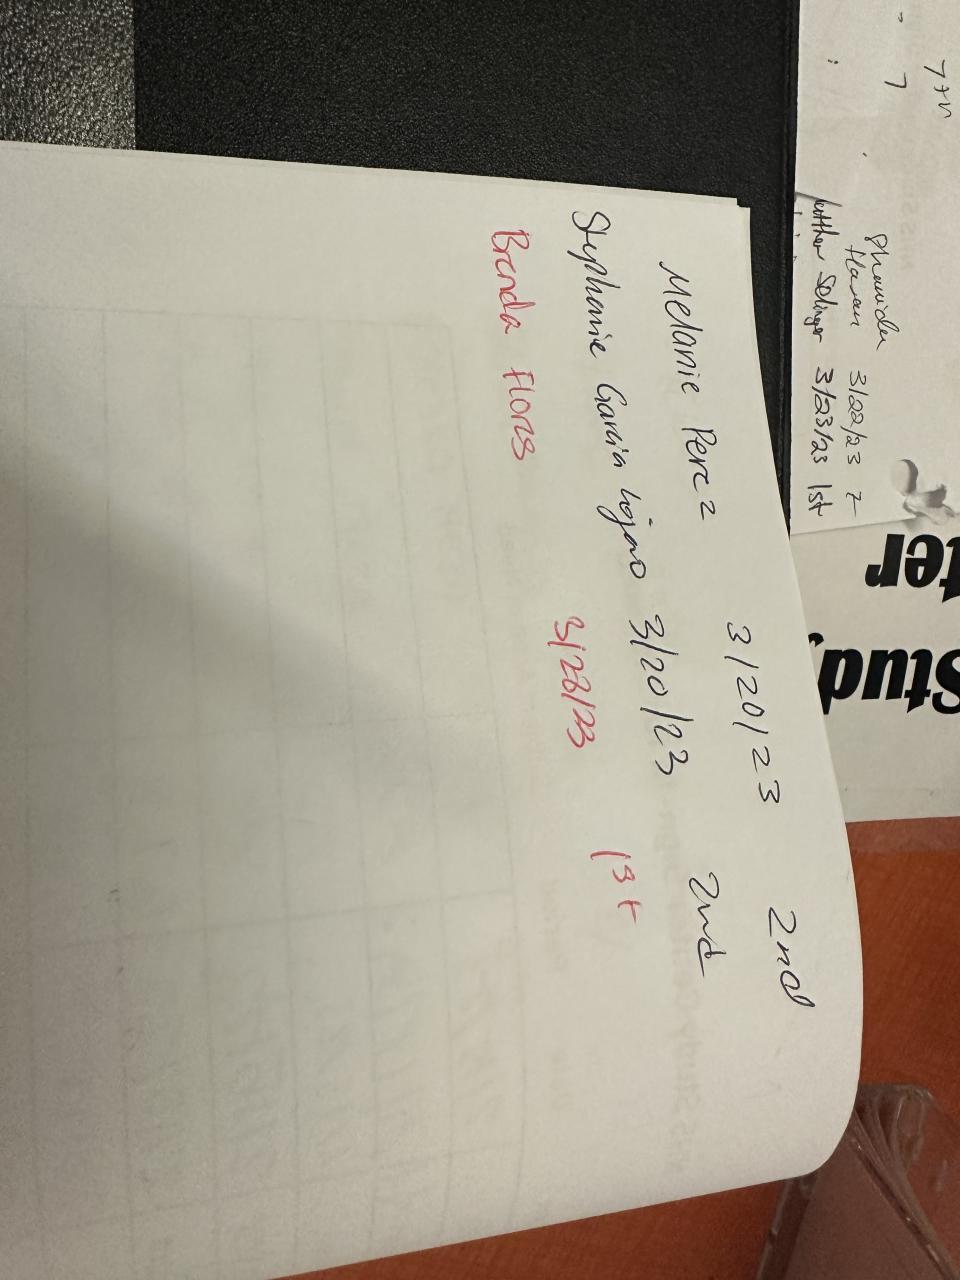 Melanie Perez 3/20/23 2nd
Stephanie Garcia 3/20/23 2nd
Brenda Flores 3/23/23 1st
3/22/23 7
Selinger 3/23/23 1st
ter
Stud